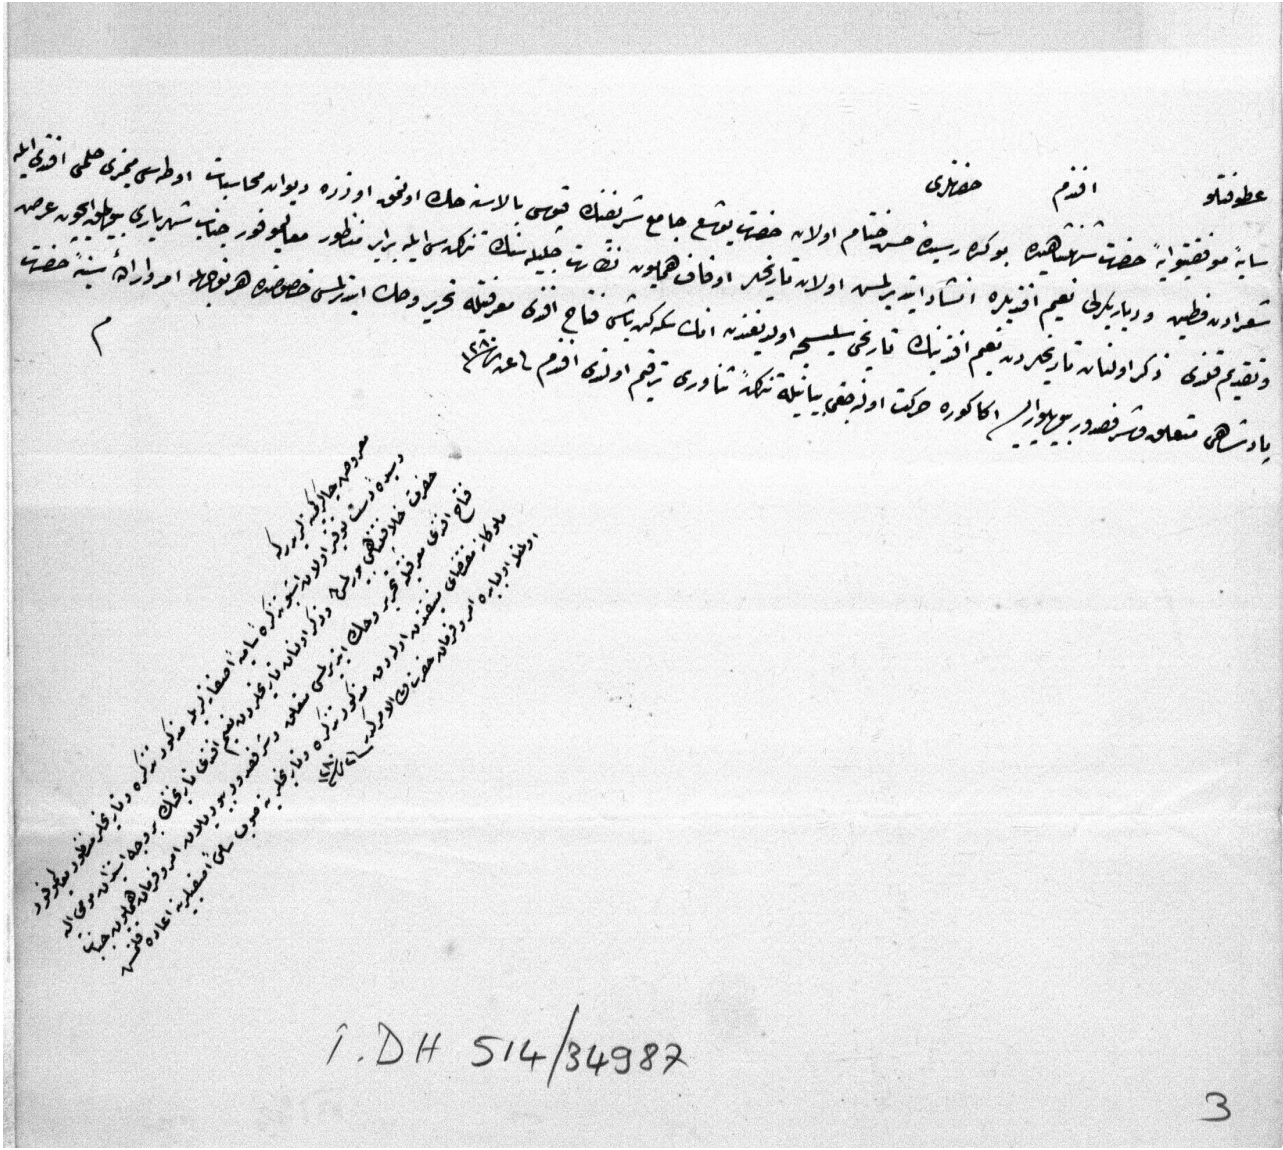 عطوفتلو افندم حضرتلری
سایهٔ موفقیتوایهٔ حضرت شهنشاهیده بو کره رسیدهٔ حسن ختام اولان حضرت یوشع جامع شریفنك قپوسی بالاسنه حك اولنمق اوزره دیوان محاسبات اوطه‌سی ممیزی حلمی افندی ایله
شعرادن فطین و دیاربکرلی نعیم افندیلره انشاد ایتدیرلمش اولان تاریخلر اوقاف همایون نظارت جلیله‌سنك تذکره‌سی ایله برابر منظور معالیموفور جناب شهریاری بیورلمق ایچون عرض
و تقدیم قلندی ذکر اولنان تاریخلردن نعیم افندینك تاریخی سلیسجه اولدیغندن انك سکه‌کن باشی فتاح افندی معرفتیله تحریر و حك ایتدیرلمسی خصوصنده هر نوجهله امر و ارادهٔ سنیهٔ حضرت
پادشاهی متعلق و شرفصدور بیوریلور ایسه اکا کوره حرکت اولنه‌جغی بیانیله تذکرهٔ ثناوری ترقیم اولندی افندم ١٢٨٠
م
معروض چاکر کمینه‌لریدرکه
رسیدهٔ دست توقیر اولان اشبو تذکرهٔ سامیهٔ آصفانه‌لریله مذکور تذکره و تاریخلر منظور معالیموفور
حضرت خلافتپناهی بورلمش و ذکر اولنان تاریخلردن نعیم افندی تاریخنك بر وجه استیذان مومی الیه
فتاح افندی معرفتیله تحریر و حك ایتدیرلمسی متعلق و شرفصدور بیوریلان امر و فرمان همایون جناب
ملوکانه مقتضای منیفندن اولدرق مذکور تذکره و تاریخلر ینه صوب سامی آصفیلرینه اعاده قلنمش
اولمغله اولبابده امر و فرمان حضرت ولی الامرکدر ١٢٨٠
İ.DH 514/34987
3